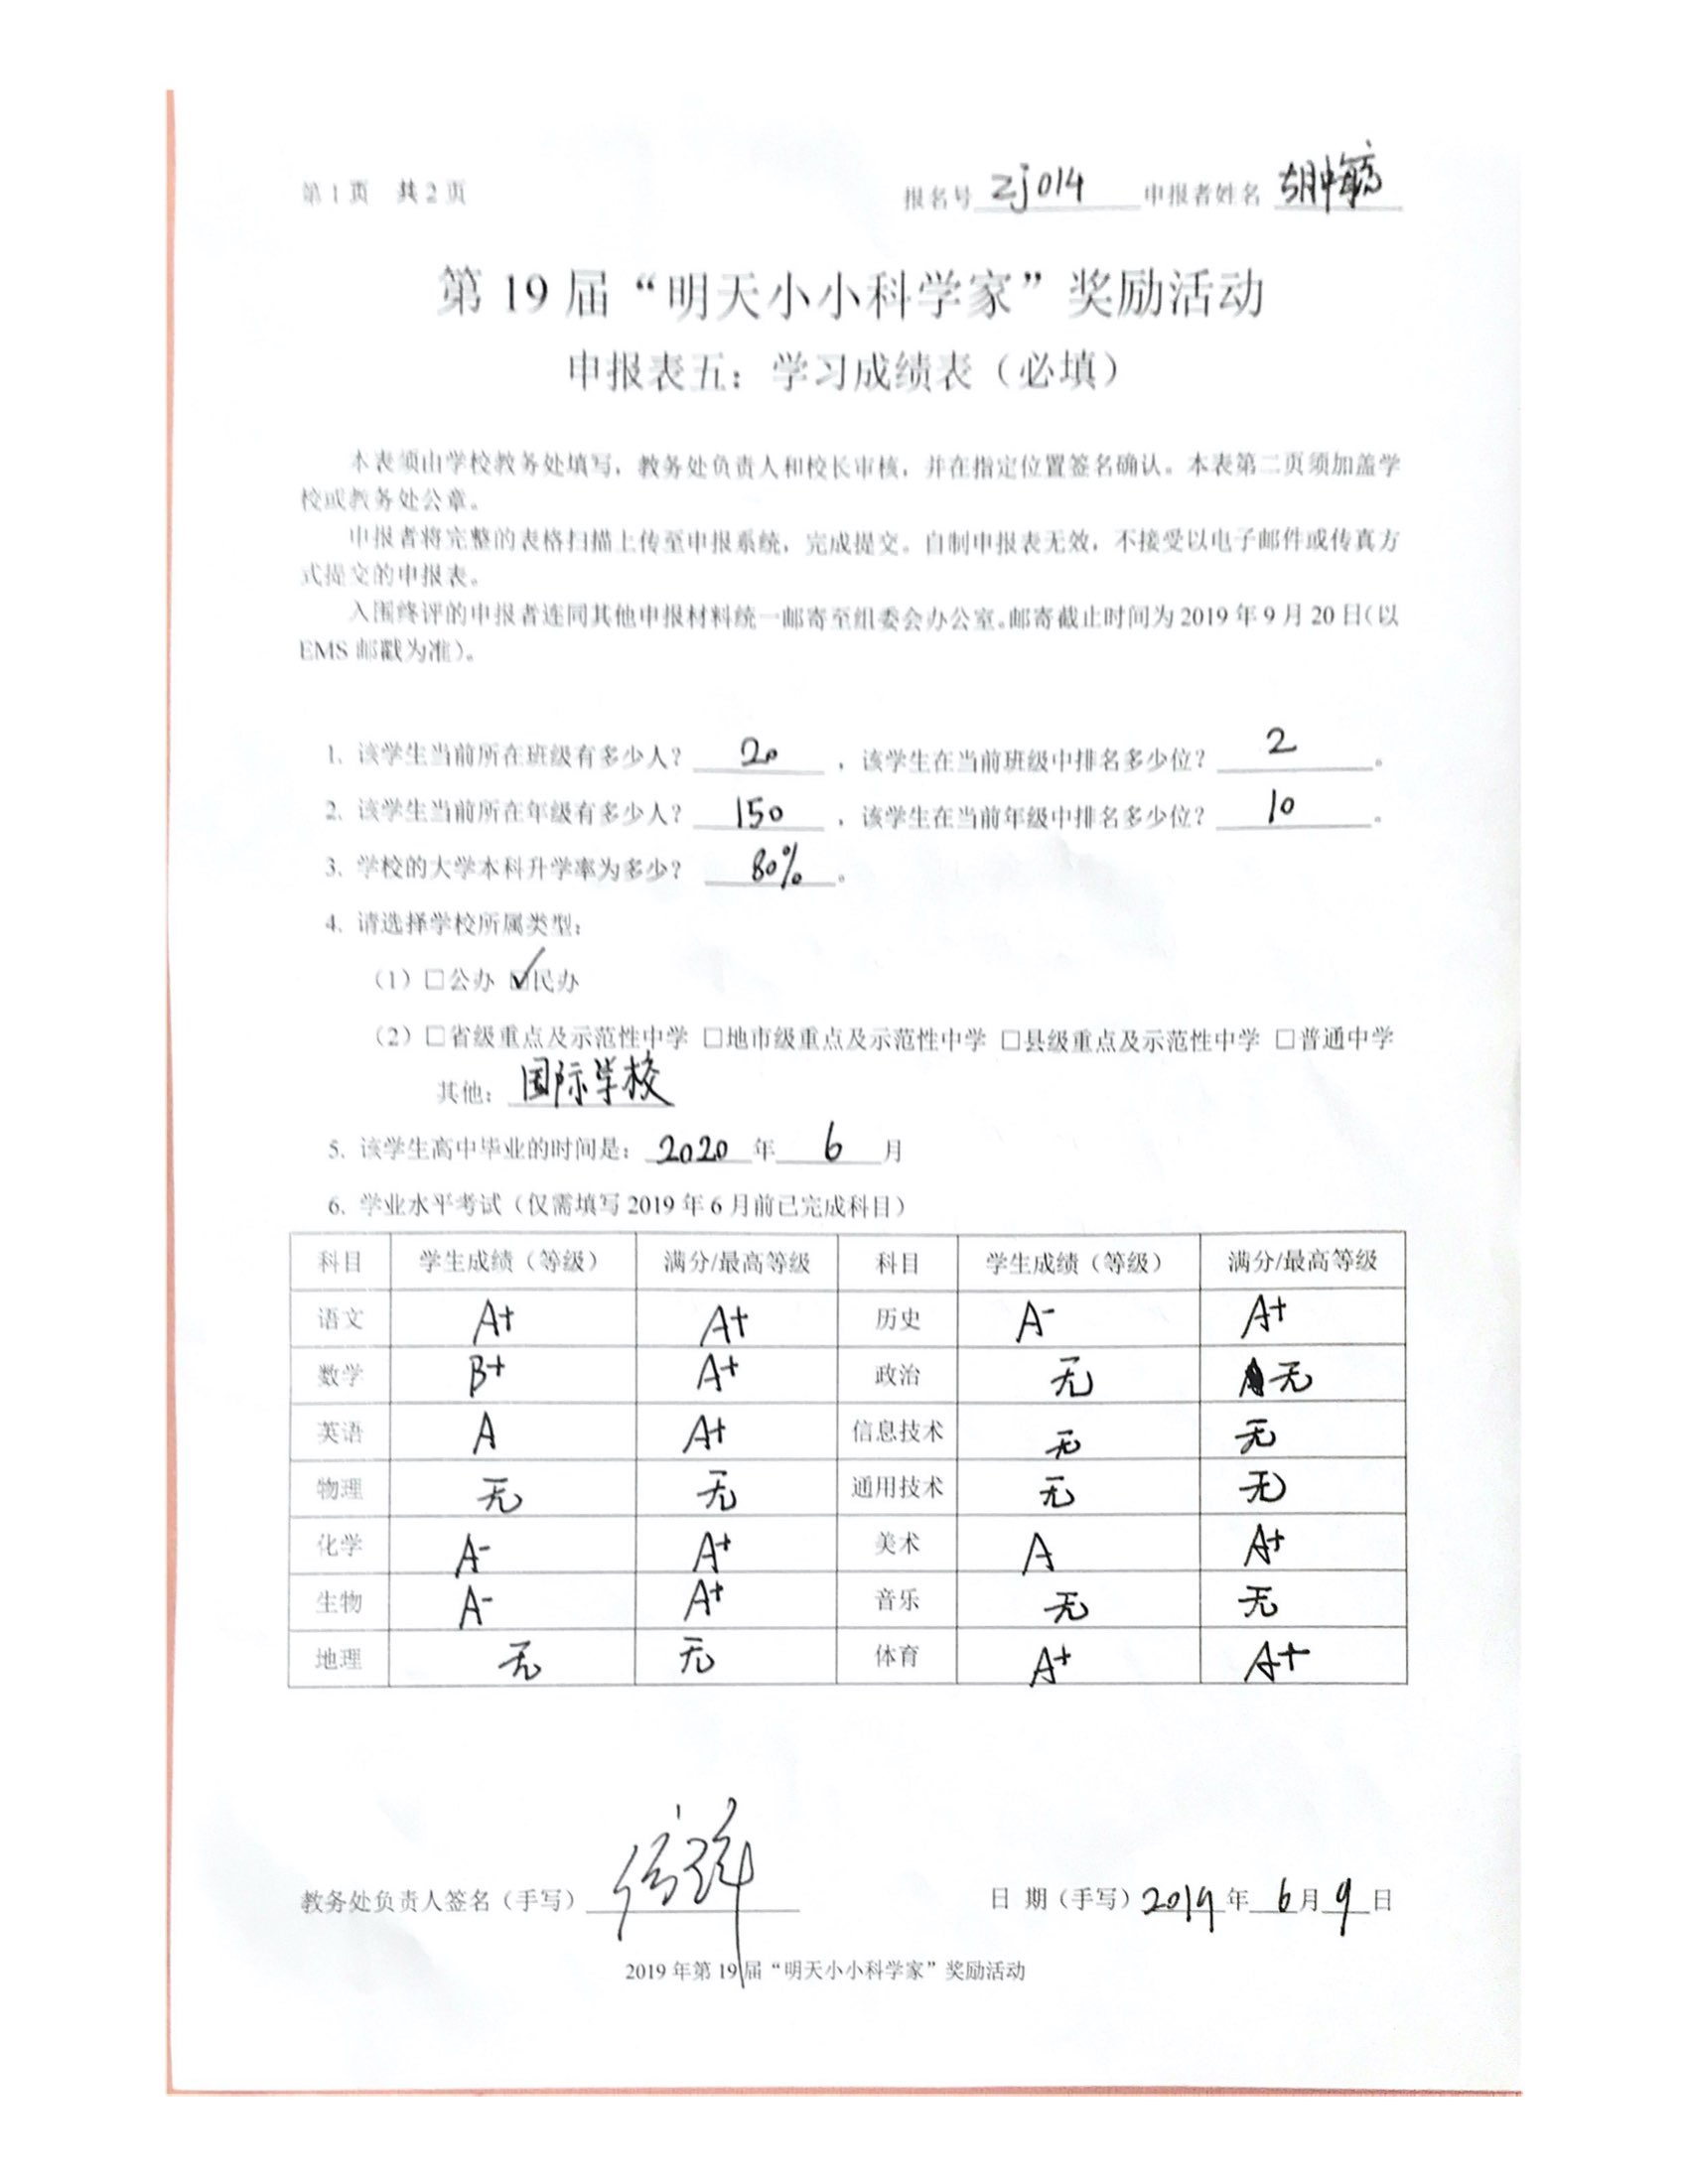 第 1 页 共 2 页 报名号 zj014 申报者姓名 胡
第 19 届“明天小小科学家”奖励活动
申报表五：学习成绩表（必填）
本表须由学校教务处填写，教务处负责人和校长审核，并在指定位置签名确认。本表第二页须加盖学
校或教务处公章。
申报者将完整的表格扫描上传至申报系统，完成提交。自制申报表无效，不接受以电子邮件或传真方
式提交的申报表。
入围终评的申报者连同其他申报材料统一邮寄至组委会办公室。邮寄截止时间为 2019 年 9 月 20 日（以
EMS 邮戳为准）。
1. 该学生当前所在班级有多少人？ 20 ，该学生在当前班级中排名多少位？ 2 。
2. 该学生当前所在年级有多少人？ 150 ，该学生在当前年级中排名多少位？ 10 。
3. 学校的大学本科升学率为多少？ 80% 。
4. 请选择学校所属类型：
（1）□公办 ☑民办
（2）□省级重点及示范性中学 □地市级重点及示范性中学 □县级重点及示范性中学 □普通中学
其他： 国际学校
5. 该学生高中毕业的时间是： 2020 年 6 月
6. 学业水平考试（仅需填写 2019 年 6 月前已完成科目）
科目 学生成绩（等级） 满分/最高等级 科目 学生成绩（等级） 满分/最高等级
语文 A+ A+ 历史 A- A+
数学 B+ A+ 政治 无 无
英语 A A+ 信息技术 无 无
物理 无 无 通用技术 无 无
化学 A- A+ 美术 A A+
生物 A- A+ 音乐 无 无
地理 无 无 体育 A+ A+
教务处负责人签名（手写） 日 期（手写）2019 年 6 月 9 日
2019 年第 19 届“明天小小科学家”奖励活动